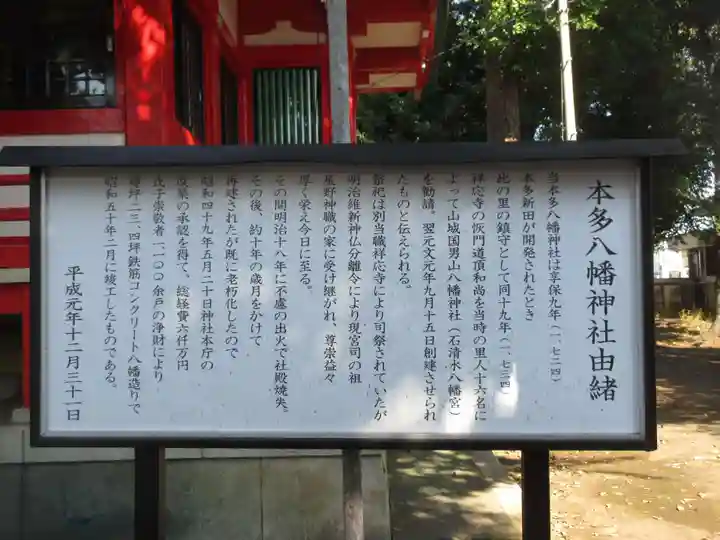 本多八幡神社由緒
当本多八幡神社は享保九年(一、七二四)
本多新田が開発されたとき
此の里の鎮守として同十九年(一、七三四)
祥応寺の恢門道頂和尚を当時の里人十六名に
よって山城国男山八幡神社(石清水八幡宮)
を勧請。翌元文元年九月十五日創建させられ
たものと伝えられる。
祭祀は別当職祥応寺により司祭されていたが
明治維新神仏分離令により現宮司の祖
星野神職の家に受け継がれ、尊崇益々
厚く栄え今日に至る。
その間明治十八年に不慮の出火で社殿焼失。
その後、約十年の歳月をかけて
再建されたが既に老朽化したので
昭和四十九年五月二十日神社本庁の
改築の承認を得て、総経費六仟万円
氏子崇敬者二、一〇〇余戸の浄財により
坪二三、四坪鉄筋コンクリート八幡造りで
昭和五十年二月に竣工したものである。
平成元年十二月三十一日